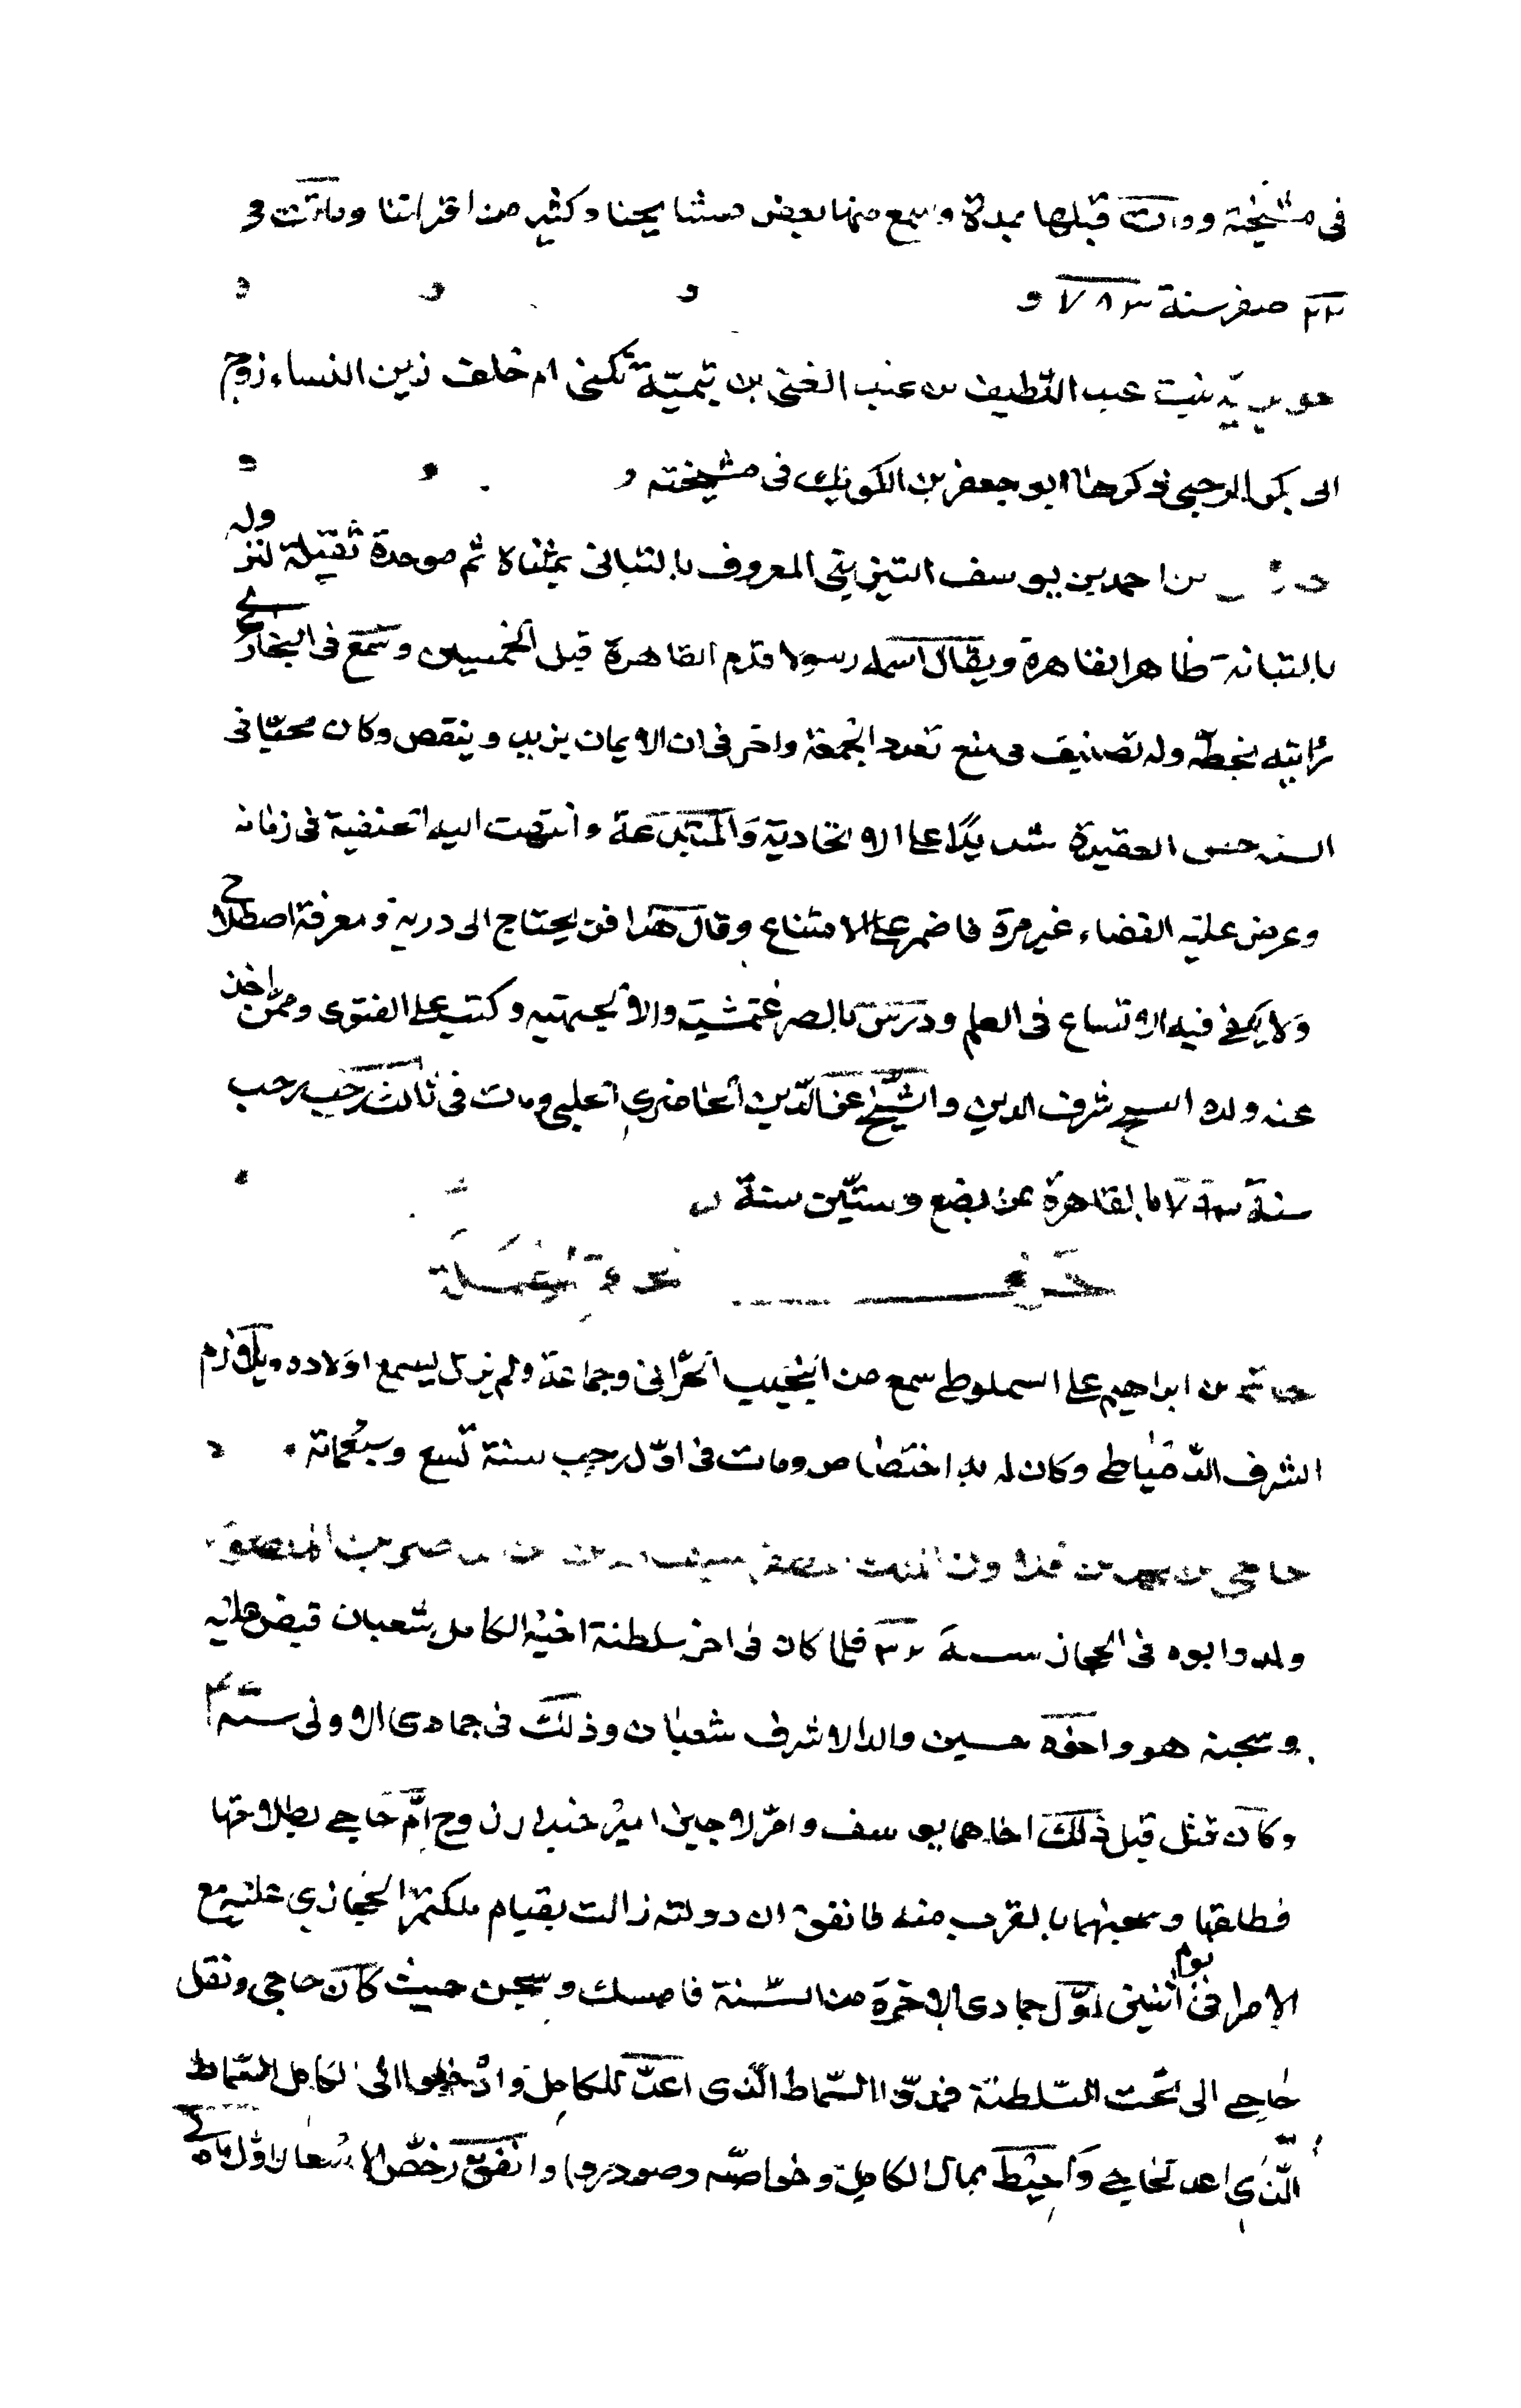 فى مشيخته وماتت قبلها بمدة وسمع منها بعض مشايخنا وكثير من اقراننا وماتت فى
٢٢ صفر سنة ٧٨٣
جويرية بنت عبد اللطيف بن عبد الغنى بن تيمية تكنى ام خلف زين النساء زوج
ابى بكر الرحبى ذكرها ابو جعفر بن الكويك فى مشيخته
بن احمد بن يوسف التيزينى المعروف بالتبانى بمثناة ثم موحدة ثقيلة لنزوله
بالتبانة ظاهر القاهرة ويقال اسمه رسولا قدم القاهرة قبل الخمسين وسمع فى البخارى
رايته بخطه وله تصنيف فى منع تعدد الجمعة واخر فى ان الايمان يزيد وينقص وكان محبّا فى
السنه حسن العقيدة شديدًا على الاتحادية والمبتدعة وانتهت اليه الحنفية فى زمانه
وعرض عليه القضاء غير مرة فاصر على الامتناع وقال هذا فن يحتاج الى دربة ومعرفة اصطلاح
ولا يكفى فيه الاتساع فى العلم ودرس بالصرغتمشية والالجيهيه وكتب على الفتوى وممّن اخذ
عنه ولده الشيخ شرف الدين والشيخ عز الدين الحاضرى الحلبى ومات فى ثالث رجب رجب
سنة ٧٩٣ بالقاهرة عن بضع وستّين سنة
حرف المهملة
حاتم بن ابراهيم على السملوطى سمع من النجيب الحرّانى وجماعة ولم يزل يسمع اولاده ويلازم
الشرف الدّمياطى وكان له به اختصاص ومات فى اوّل رجب سنة تسع وسبعمائة
حاجى بن محمد بن قلاوون الملك المظفر سيف الدين بن الناصر بن المنصور
ولد وابوه فى الحجاز سنة ٣٢ فلما كان فى اخر سلطنة اخيه الكامل شعبان قبض عليه
وسجنه هو واخوه حسين والد الاشرف شعبان وذلك فى جمادى الاولى سنة
وكان قتل قبل ذلك اخاهما يوسف وامر لاجين امير جندار زوج امّ حاجى بطلاقها
فطلقها وسجنهما بالقرب منه فاتفق ان دولته زالت بقيام ملكتمر الحجازى عليه مع
الامرا فى يوم اثنين اوّل جمادى الاخرة من السّنة فامسك وسجن حيث كان حاجى ونقل
حاجى الى تخت السّلطنة فمدّوا السّماط الّذى اعدّ للكامل وادخلوا الى الكامل السّماط
الّذى اعد لحاجى واحيط بمال الكامل وخواصّه وصودروا واتفق رخص الاسعار اوّل